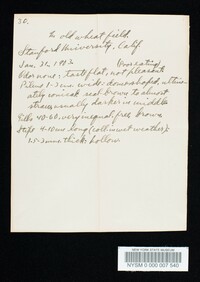 30.
In old wheat field.
Stanford University, Calif
Jan. 21, 1902 (
Odor none; taste flat, not pleasant
Pileus 1-2 cm. wide, dome shaped,
conical seal brown to almost
straw, usually darker in middle
Gills 40-60, very unequal, free brown
Stipe 4-10 cm long (collin wet weather);
1.5-2 mm thick hollow
NEW YORK STATE MUSEUM
NYSM 0 000 007 540